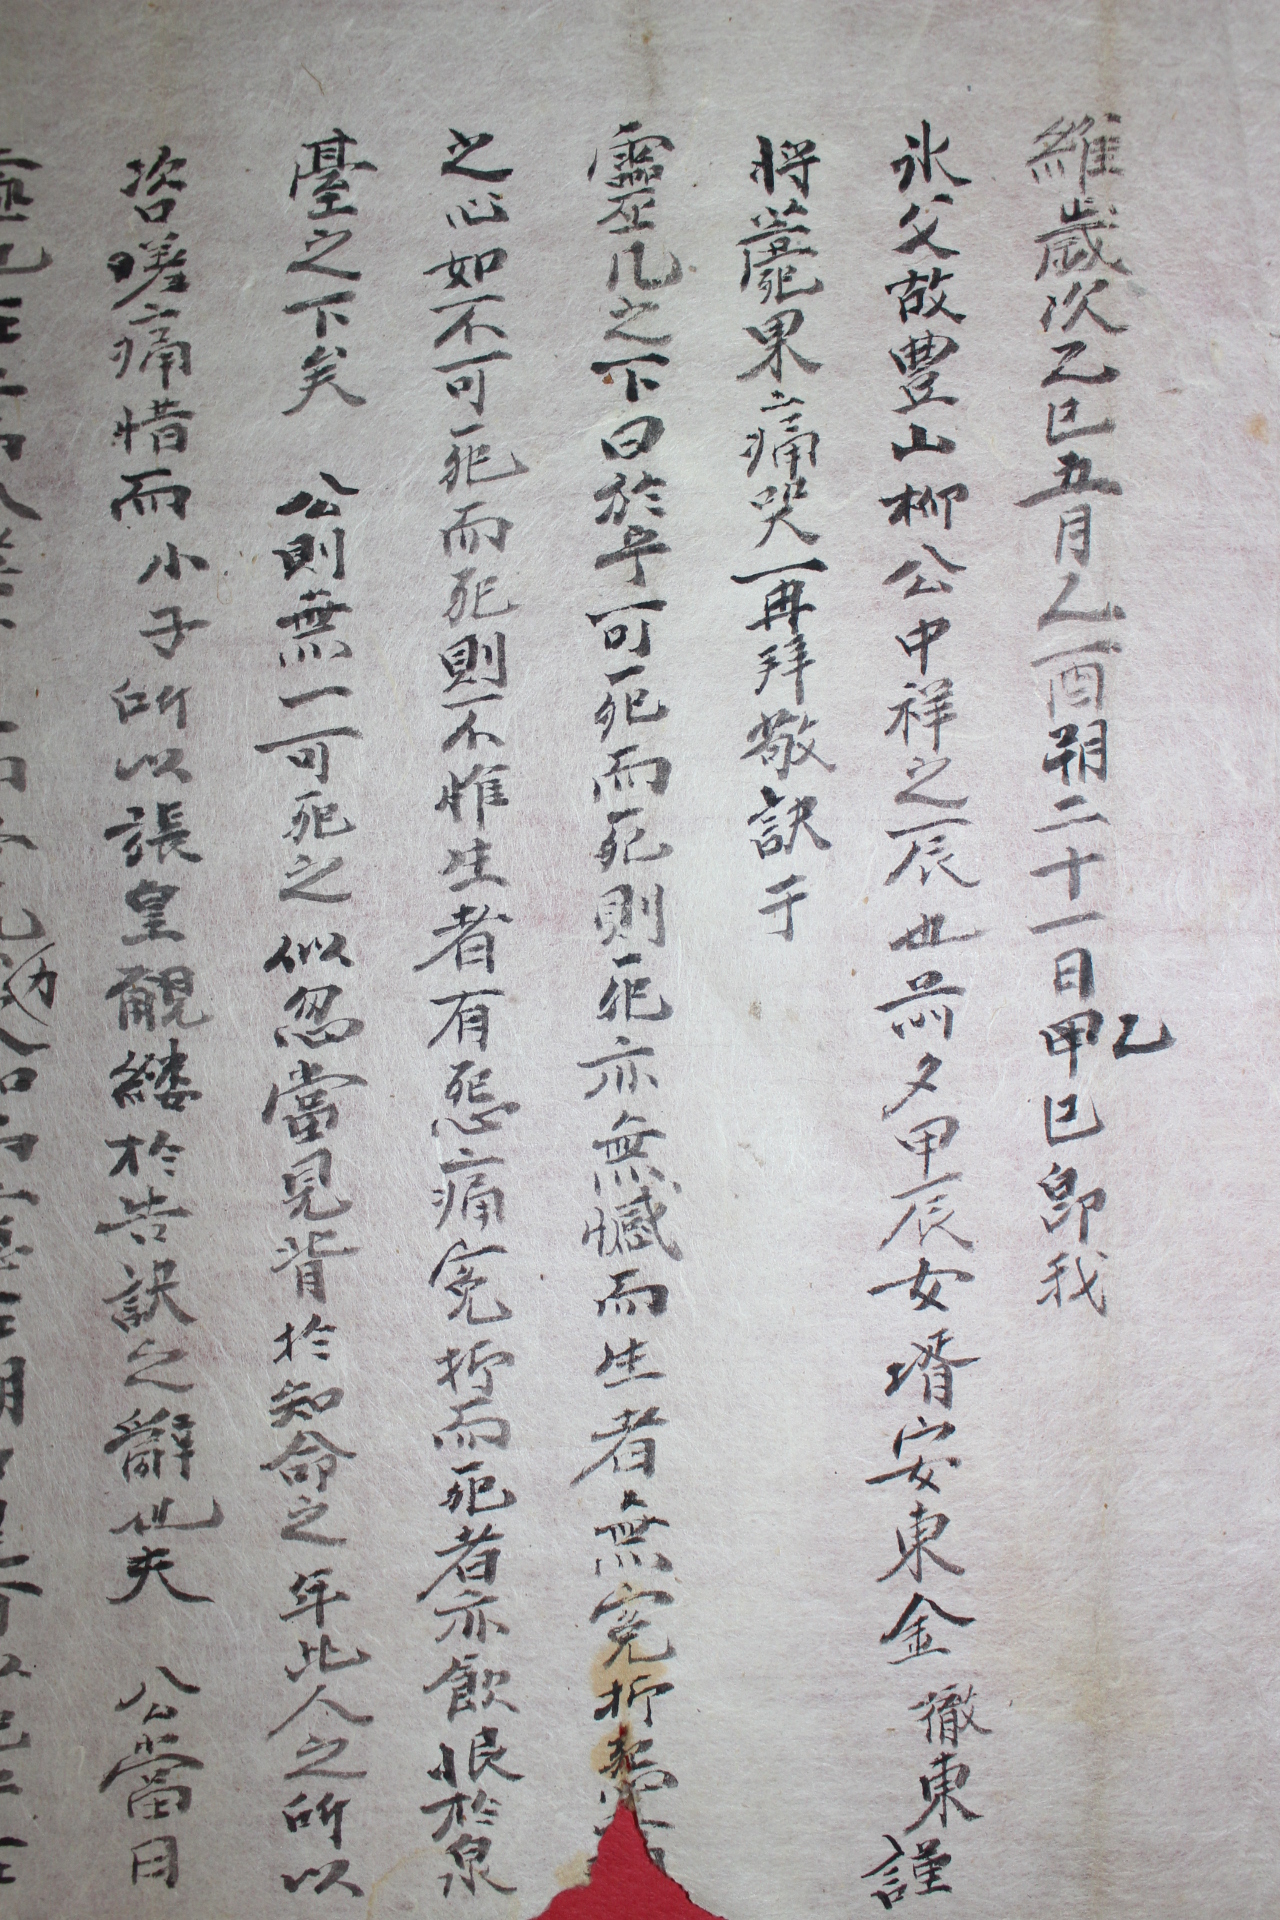 維歲次乙巳五月乙酉朔二十一日甲乙巳卽我
氷父故豊山柳公中祥之辰也前夕甲辰女壻安東金徹東謹
將薨果痛哭一再拜敬訣于
靈座几之下曰於乎可死而死則死亦無憾而生者無寃折怨
之心如不可死而死則不惟生者有怨痛寃折而死者亦飮恨於泉
臺之下矣 公則無一可死之似忽當見背於知命之年此人之所以
咨嗟痛惜而小子所以張皇覶縷於告訣之辭也夫 公當日